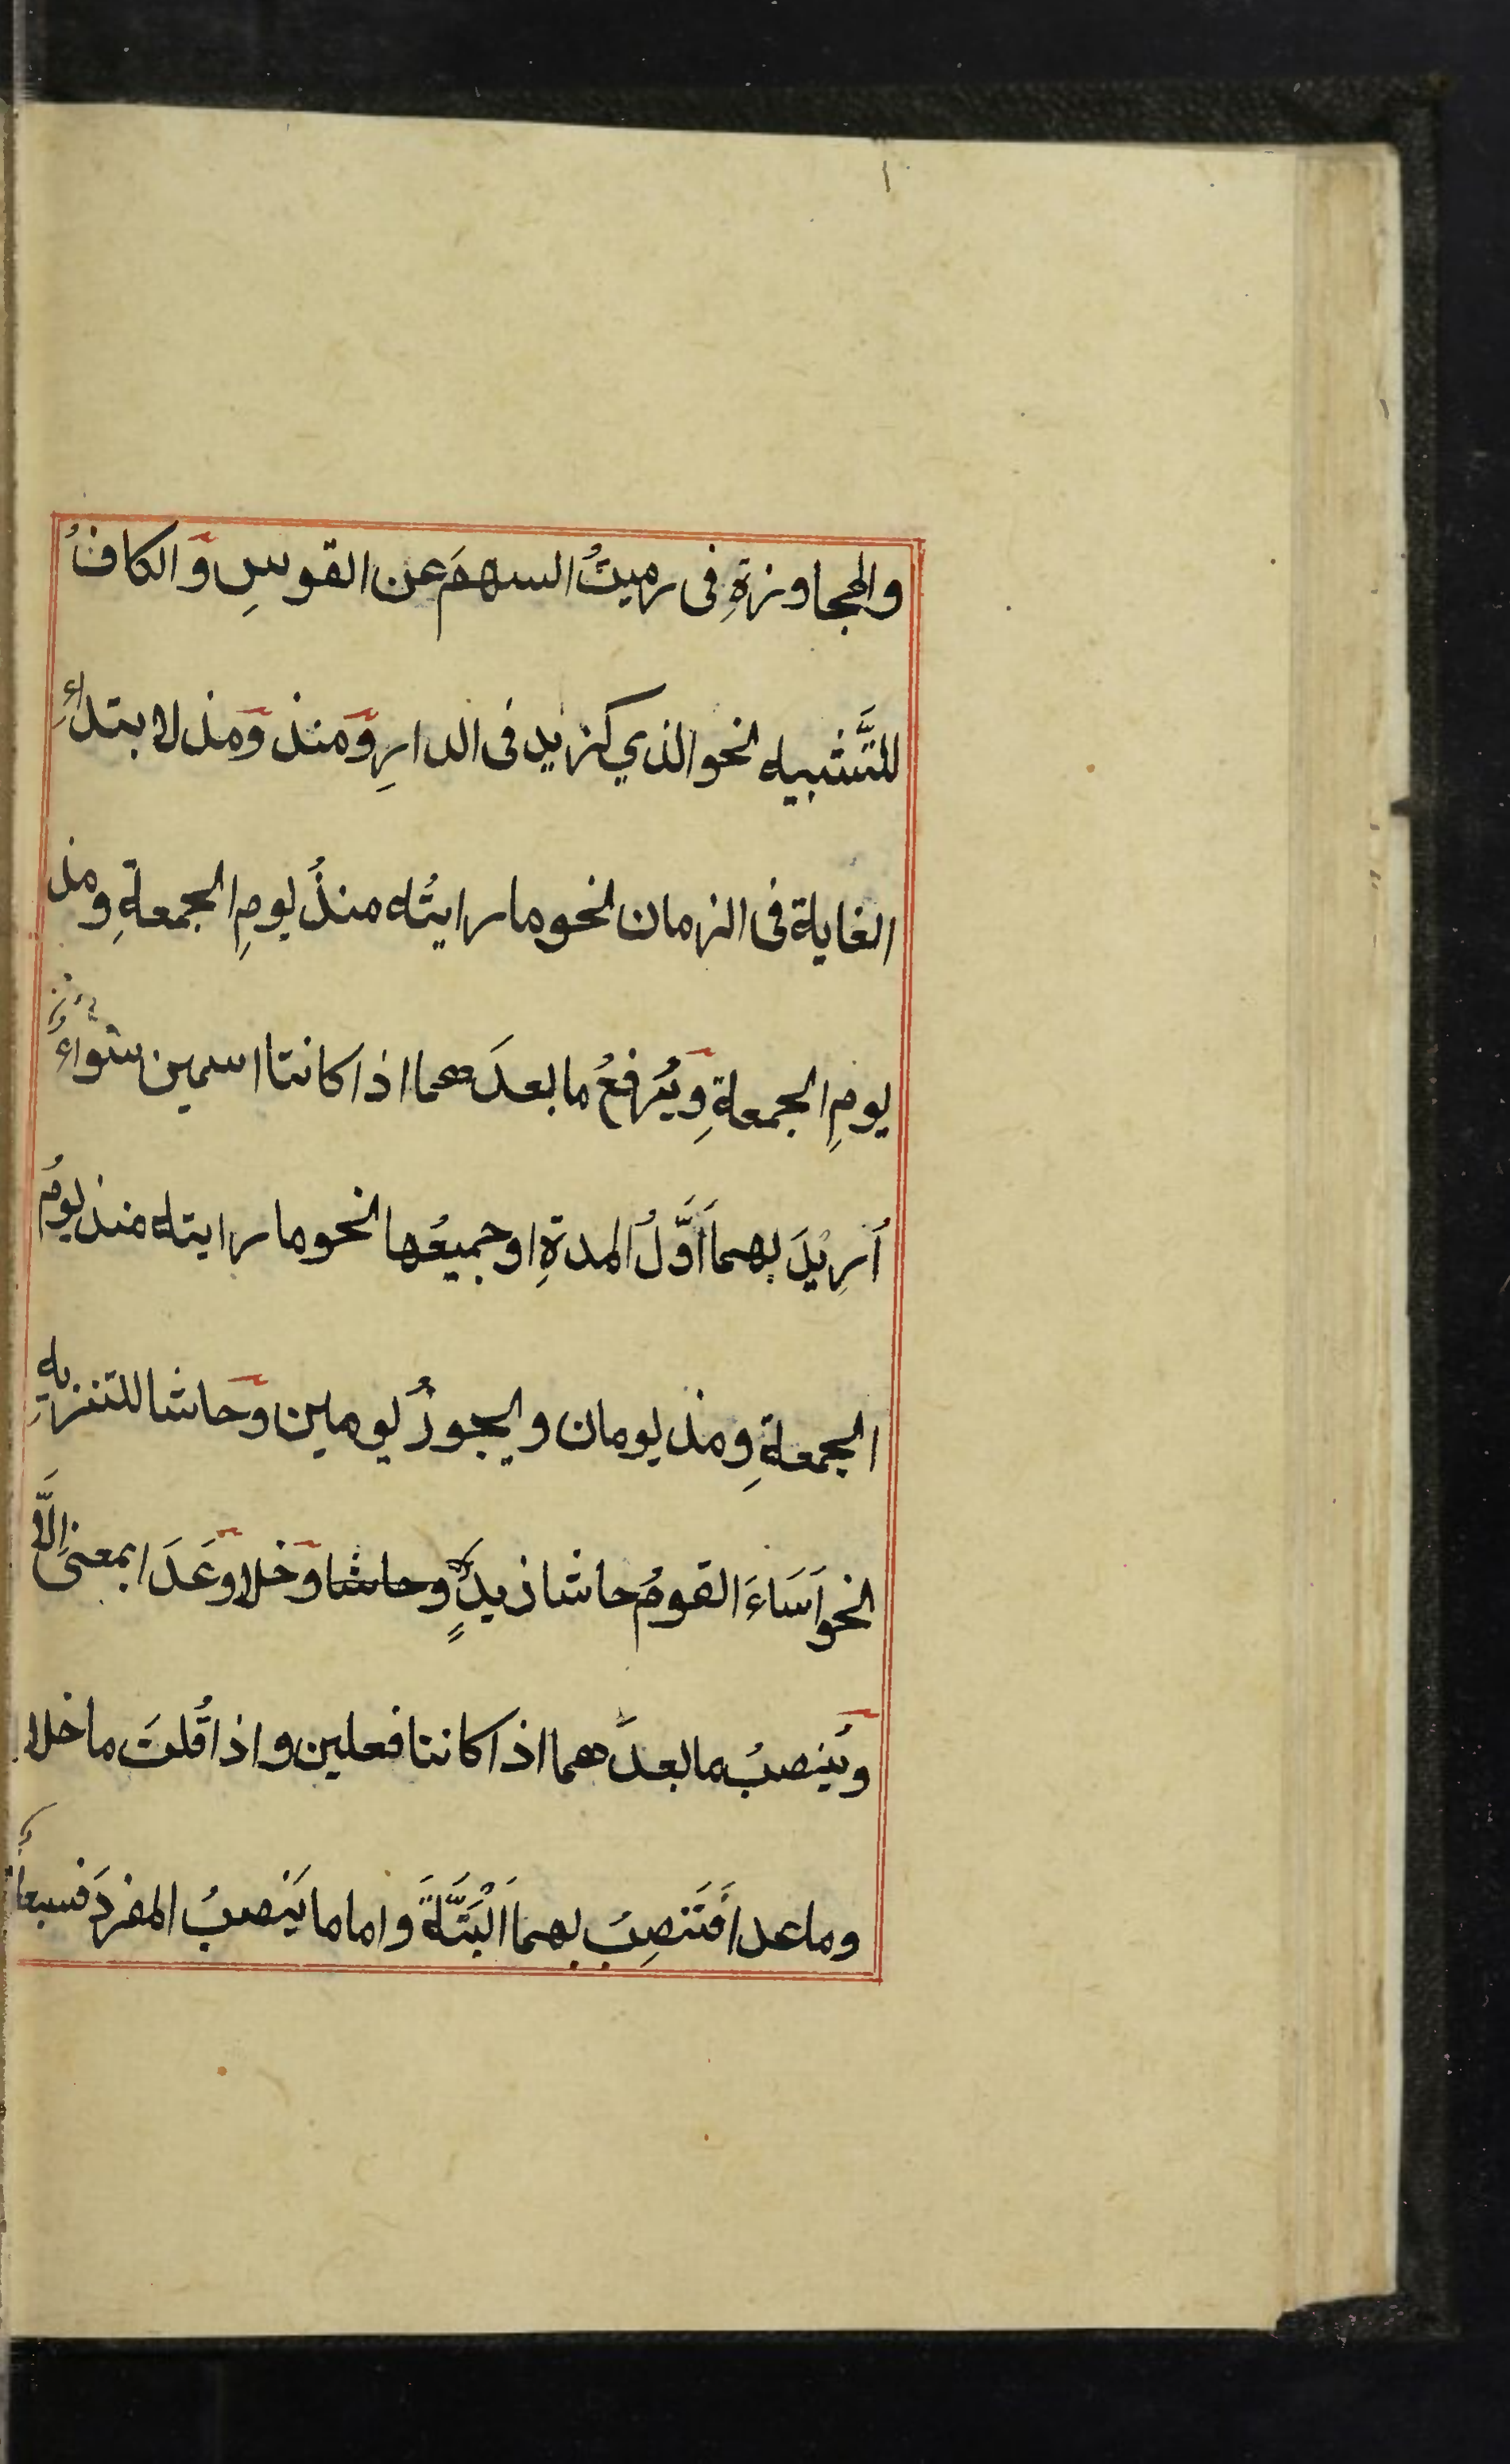 والمجاوزةِ فى رميتُ السهمَ عن القوسِ وَالكافُ
للتَّشبيه نحو الذي كزيد فى الدارِ وَمنذ وَمذ لابتداءِ
الغاية فى الزمان نحو ما رايتُه منذُ يومِ الجمعةِ ومذ
يومِ الجمعةِ وَيُرفعُ ما بعدَهما اذا كانتا اسمين سَواءً
اُرِيْدَ بهما اَوَّلُ المدةِ او جميعُها نحو ما رايته منذ يومُ
الجمعةِ ومذ يومان ويجوزُ يومين وَحاشا للتنزيهِ
نحو اَسَاءَ القومُ حاشا زيدٍ وحاشا وَخلا وَعَدَا بمعنى اِلَّا
وَيُنصبُ ما بعدَهما اذا كانتا فعلين واذا قُلتَ ما خلا
وما عدا فَتَنصِبُ بهما اَلْبَتَّةَ واما ما يَنصبُ المفردَ فسبعةٌ